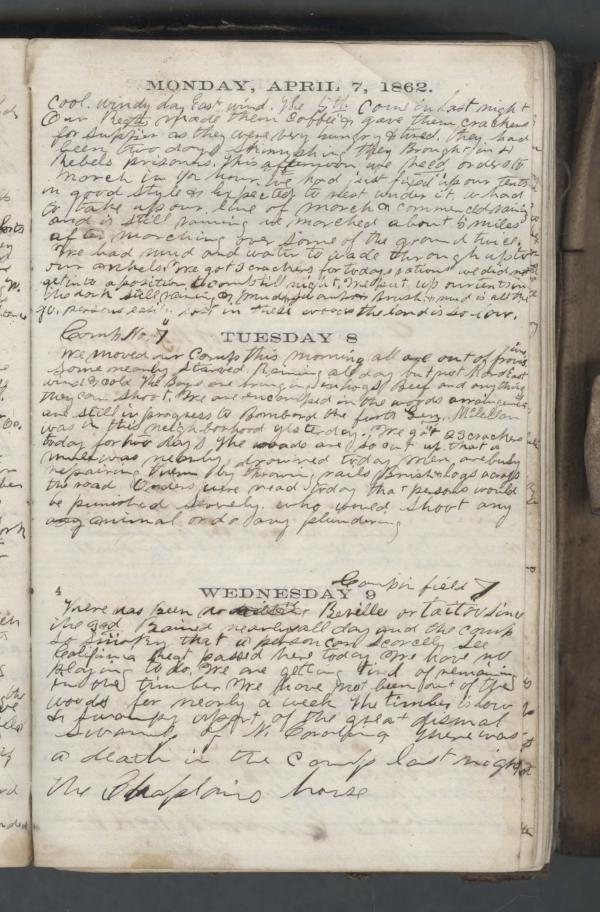 MONDAY, APRIL 7, 1862.
Cool. windy day East wind. The 5th Come in last night
Our Regt. made them Coffee & gave them crackers
for supper as they were very hungry & tired. they had
been two days skirmishing they Brought in 4
Rebels prisoners. This afternoon we recd orders to
march in ½ hour. We had just fixed up our tents
in good style & expected to rest under it. we had
to take up our line of march & commenced raining
and is still raining we marched about 5 miles
after marching over some of the ground twice.
We had mud and water to wade through up to
our ankels. We got 3 crackers for todays rations we did not
get into a position to camp till night, We put up our tents in
the dark still raining & Brush & mud is all the
go. persons easily lost in these woods the land is so low.
Camp No. 7
TUESDAY 8
We moved our Camp this morning all are out of
Some nearly starved Raining all day but not Hard East
wind & cold The Boys are bringing in hogs Beef and anything
they can shoot. We are encamped in the woods arrangements
are still in progress to Bombord the fort Gen. McLellan
was in this neighborhood yesterday. We got 23 crackers
today for two day's The roads are so cut up that a
mule was nearly drowned today Men are busy
repairing them by throwing rails, Brush & logs across
the road Orders were read today that persons would
be punished Severely. who would shoot any
any animal or do any plundering
4 WEDNESDAY 9
Camp in field 7
There has been no Reveille or tattoo since
the Rained nearly all day and the camp
so smokey that a person can scarcely see
California Regt passed here today We have no
playing to do. We are getting tired of remaining
in the timber We have not been out of the
woods for nearly a week The timber is low
& swampy a part of the great dismal
swamp of N. Carolina There was
a death in the camp last night
the Chaplains horse